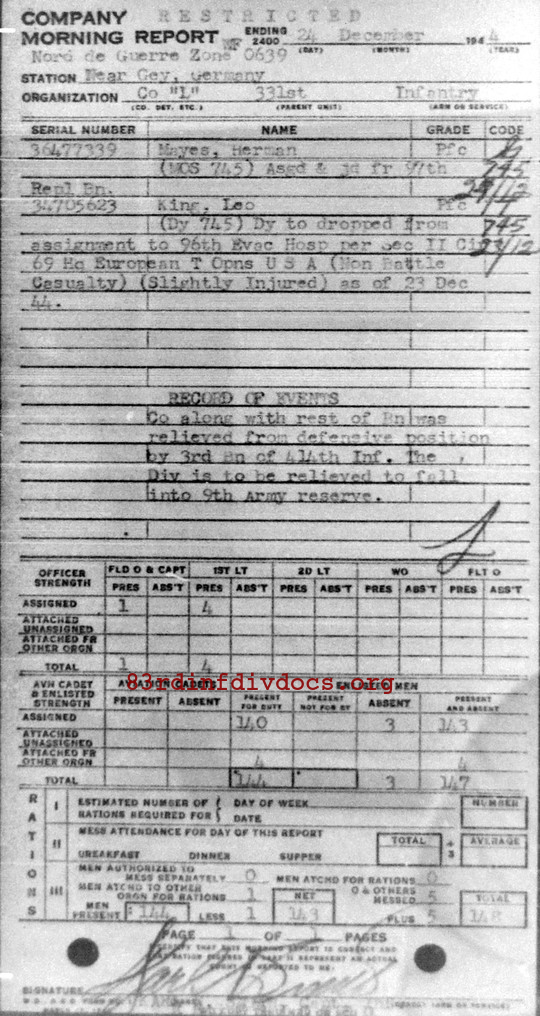 RESTRICTED
COMPANY
MORNING REPORT ENDING 2400 24 December 1944
(DAY) (MONTH) (YEAR)
Nord de Guerre Zone VF 0639
STATION Near Gey, Germany
ORGANIZATION Co "L" 331st Infantry
(CO. DET. ETC.) (PARENT UNIT) (ARM OR SERVICE)
SERIAL NUMBER NAME GRADE CODE
36477339 Mayes, Herman Pfc
(MOS 745) Asgd & jd fr 97th 745
Repl Bn. 24/12
34705623 King, Leo Pfc
(Dy 745) Dy to dropped from 745
assignment to 96th Evac Hosp per Sec II Cir 23/12
69 Hq European T Opns U S A (Non Battle
Casualty) (Slightly Injured) as of 23 Dec
44.
RECORD OF EVENTS
Co along with rest of Bn was
relieved from defensive position
by 3rd Bn of 414th Inf. The
Div is to be relieved to fall
into 9th Army reserve.
OFFICER STRENGTH FLD O & CAPT 1ST LT 2D LT WO FLT O
PRES ABS'T PRES ABS'T PRES ABS'T PRES ABS'T PRES ABS'T
ASSIGNED 1 4
ATTACHED UNASSIGNED
ATTACHED FR OTHER ORGN
TOTAL 1 4
83rdinfdivdocs.org
AVN CADET & ENLISTED STRENGTH AVIATION CADETS ENLISTED MEN
PRESENT ABSENT PRESENT FOR DUTY PRESENT NOT FOR DY ABSENT PRESENT AND ABSENT
ASSIGNED 140 3 143
ATTACHED UNASSIGNED
ATTACHED FR OTHER ORGN 4 4
TOTAL 144 3 147
RATIONS
I ESTIMATED NUMBER OF RATIONS REQUIRED FOR { DAY OF WEEK DATE NUMBER
II MESS ATTENDANCE FOR DAY OF THIS REPORT TOTAL ÷ 3 AVERAGE
BREAKFAST DINNER SUPPER
III MEN AUTHORIZED TO MESS SEPARATELY 0 MEN ATCHD FOR RATIONS 0
MEN ATCHD TO OTHER ORGN FOR RATIONS 1 NET O & OTHERS MESSED 5 TOTAL
MEN PRESENT 144 LESS 1 143 PLUS 5 148
PAGE 1 OF 1 PAGES
SIGNATURE